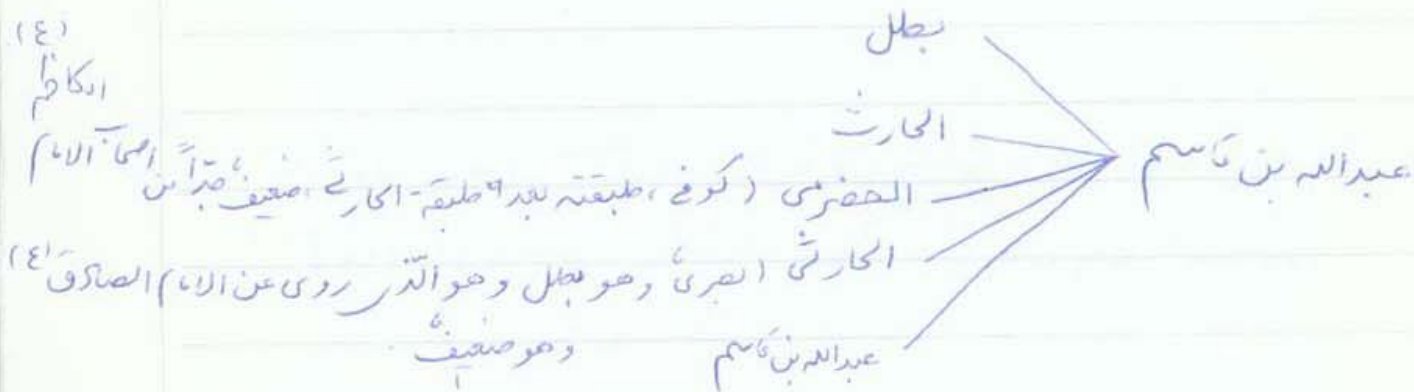 عبدالله بن قاسم
بطل
الحارث
الحضرمي (كوفي، طبقته بعد طبقة الحارثي، ضعيف جداً من اصحاب الامام
الكاظم
(ع)
الحارثي البصري وهو بطل وهو الذي روى عن الامام الصادق (ع)
وهو ضعيف
عبدالله بن قاسم